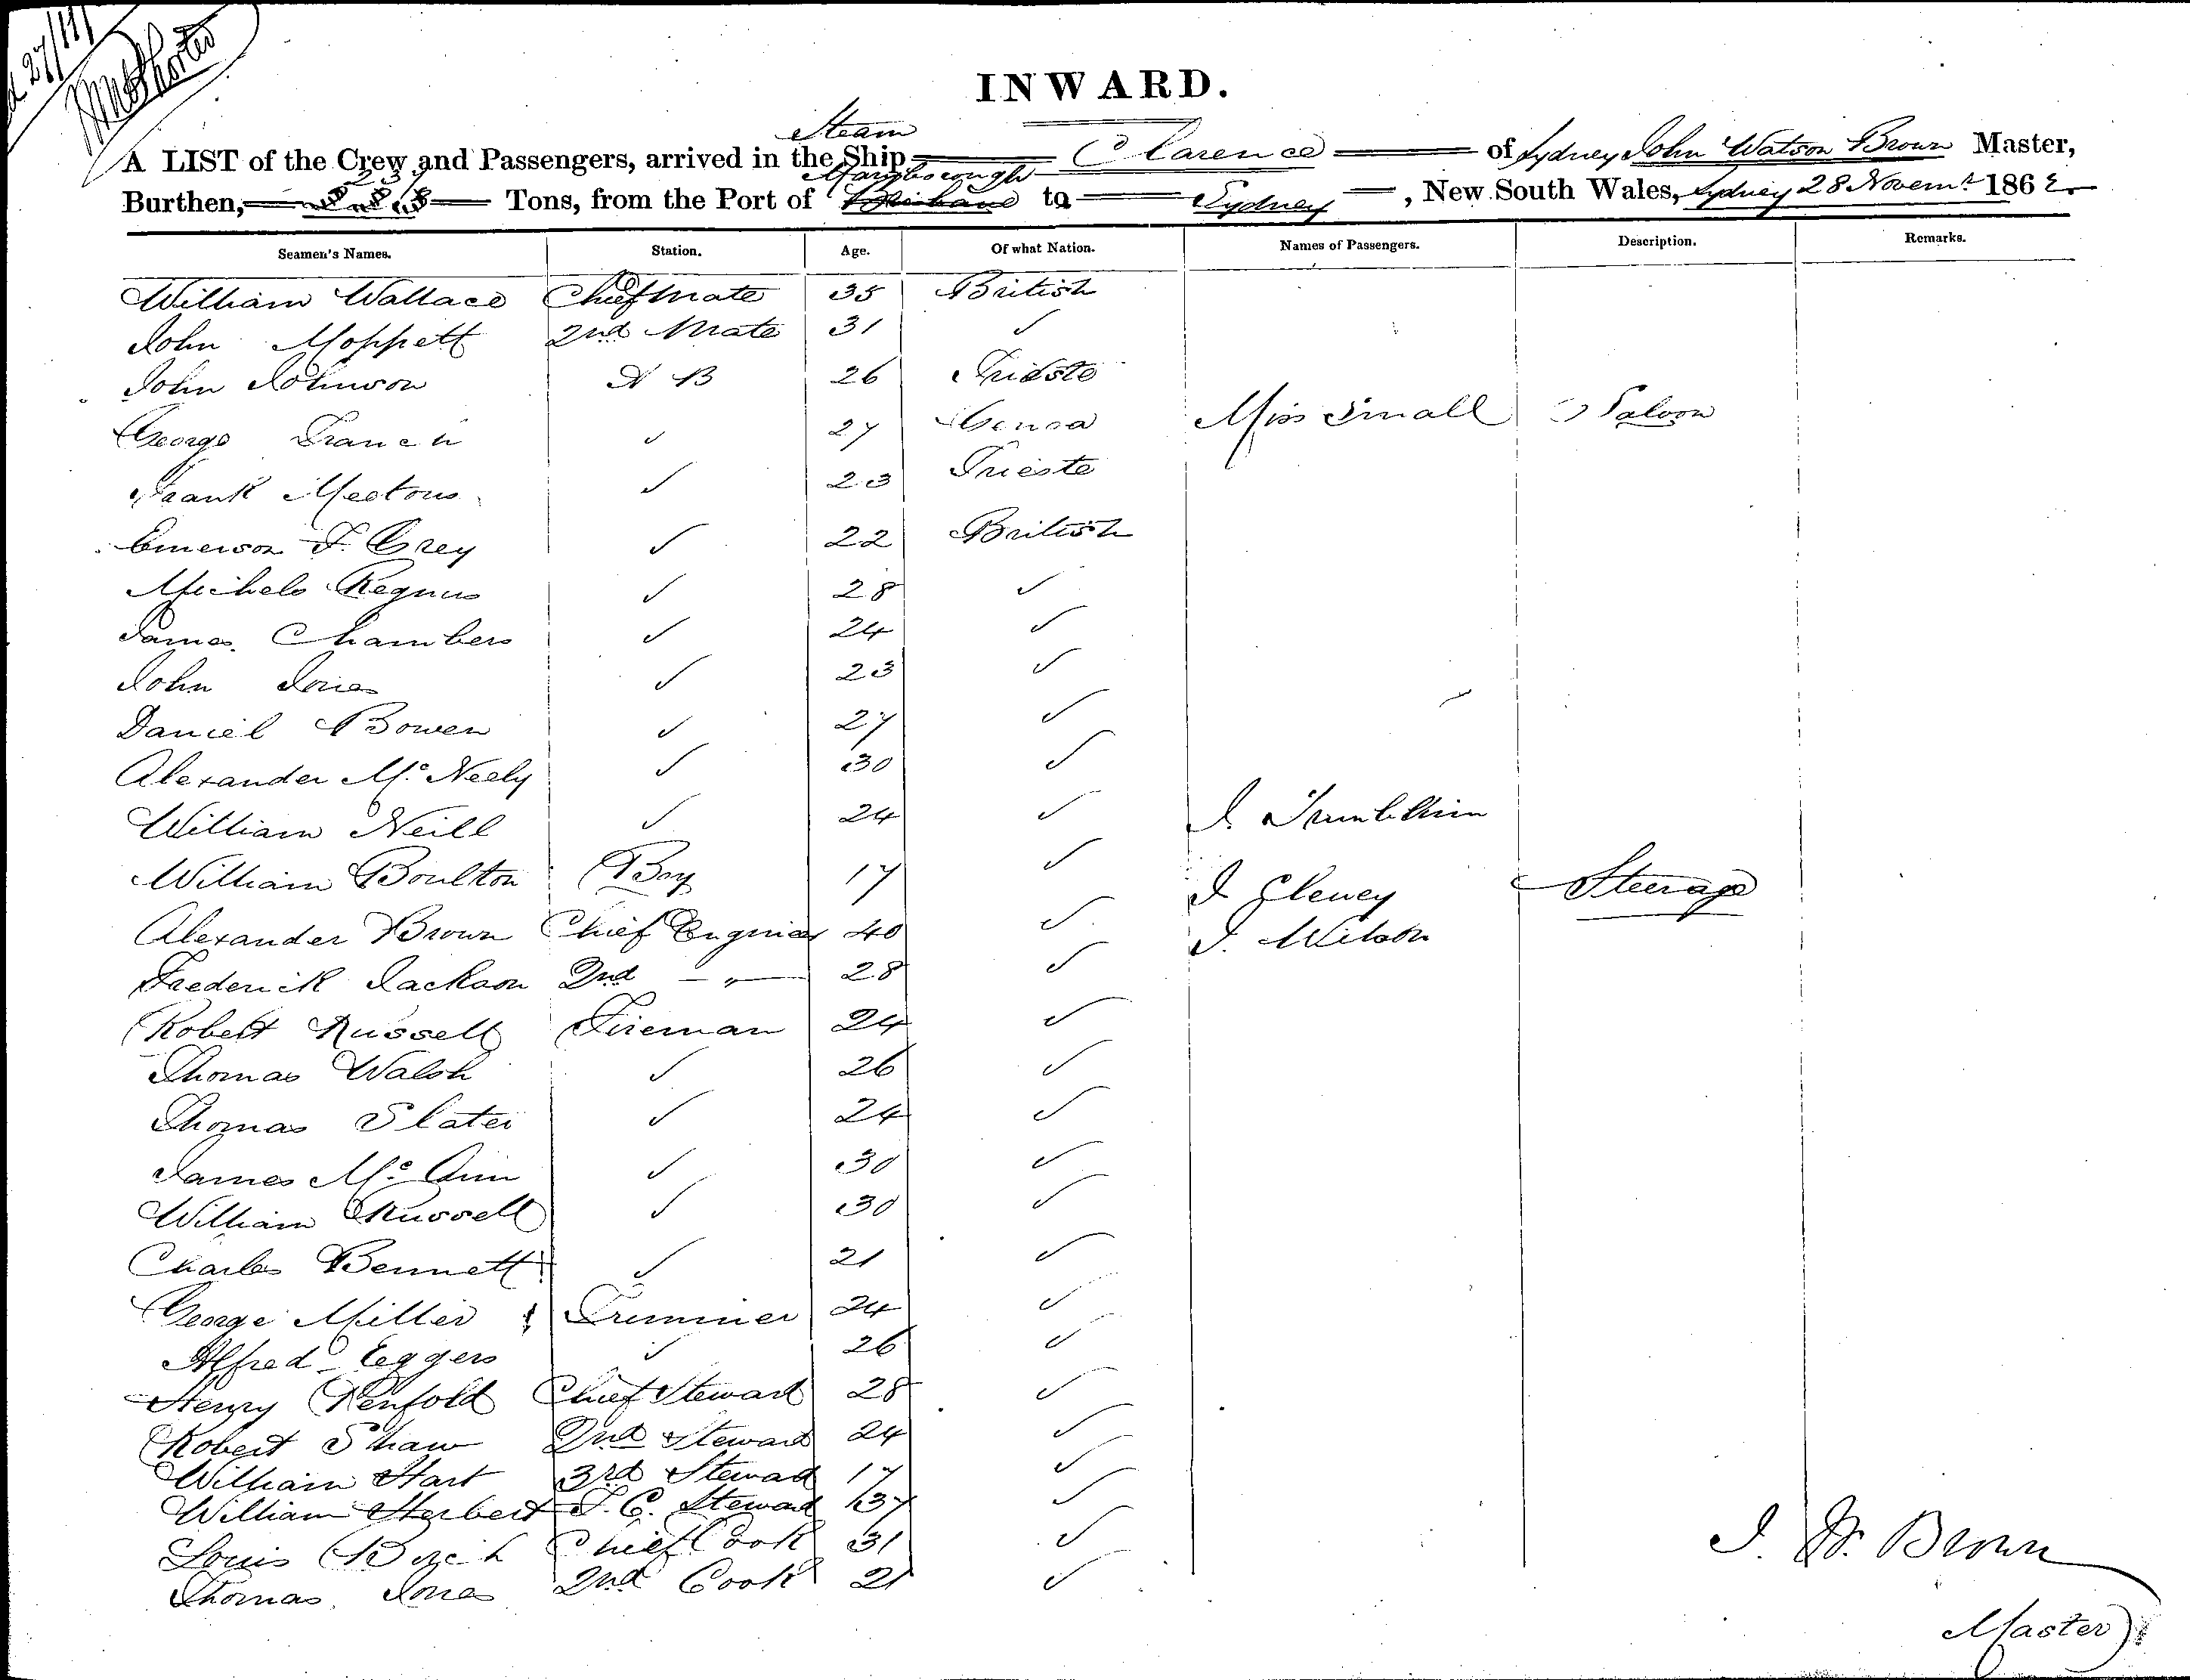 INWARD.
Steam
A LIST of the Crew and Passengers, arrived in the Ship Clarence of Sydney John Watson Brown Master,
Maryborough
Burthen, Tons, from the Port of Brisbane to Sydney, New South Wales, Sydney 28 Novemr 1862
Seamen's Names. Station. Age. Of what Nation. Names of Passengers. Description. Remarks.
William Wallace Chief Mate 35 British
John Moppett 2nd Mate 31 ✓
John Johnson A B 26 Trieste
George Franch ✓ 27 Genoa Miss Small Saloon
Frank Meetous ✓ 23 Trieste
Emerson F. Grey ✓ 22 British
Michele Regnus ✓ 28 ✓
James Chambers ✓ 24 ✓
John Jones ✓ 23 ✓
Daniel Bowen ✓ 27 ✓
Alexander Mc Neely ✓ 30 ✓
William Neill ✓ 24 ✓ J.
William Boulton Boy 17 ✓ J Cleuey Steerage
Alexander Brown Chief Engineer 40 ✓ J. Wilson
Frederick Jackson 2nd — " — 28 ✓
Robert Russell Fireman 24 ✓
Thomas Walsh ✓ 26 ✓
Thomas Slater ✓ 24 ✓
James Mc Ginn ✓ 30 ✓
William Russell ✓ 30 ✓
Charles Bennett ✓ 21 ✓
George Miller Trimmer 24 ✓
Alfred Eggers ✓ 26 ✓
Henry Penfold Chief Steward 28 ✓
Robert Shaw 2nd Steward 24 ✓
William Hart 3rd Steward 17 ✓
William Herbert F. C. Steward 37 ✓
Louis Chief Cook 31 ✓
Thomas Jones 2nd Cook 21 ✓
J. W. Brown
Master